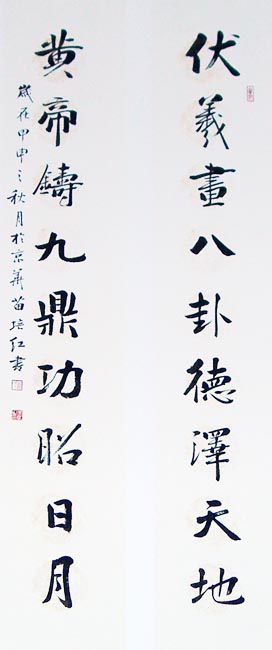 伏羲畫八卦德澤天地
黄帝鑄九鼎功昭日月
歲在甲申之秋月於京華苗培红書